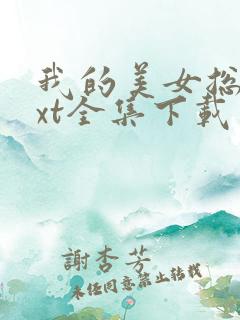 我的美女总
xt全集下载
謝杏芳
未经同意禁止转载